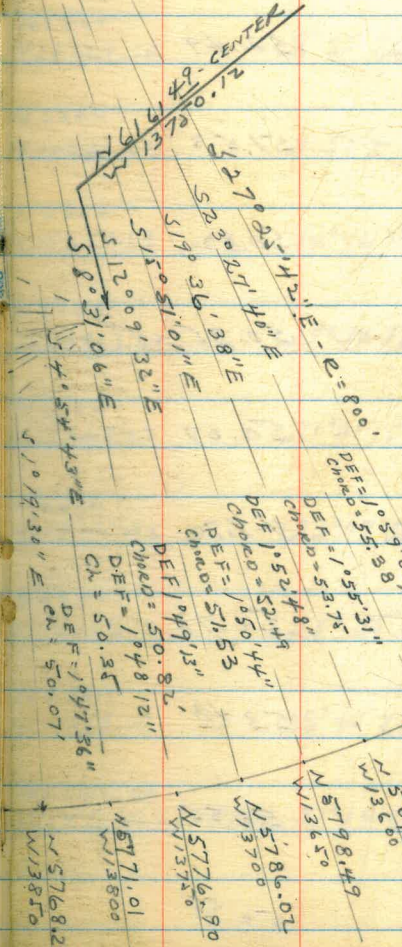 CENTER
S 27° 25' 42" E - R = 800'
S 23° 27' 40" E
S 19° 36' 38" E
S 15° 51' 01" E
S 12° 09' 32" E
S 8° 31' 06" E
S 4° 54' 43" E
S 1° 19' 30" E
DEF = 1° 59'
CHORD = 55.38
DEF = 1° 55' 31"
CHORD = 53.75
DEF 1° 52' 48"
CHORD = 52.49
DEF = 1° 50' 44"
CHORD = 51.53
DEF 1° 49' 13"
CHORD = 50.82'
DEF = 1° 48' 12"
Ch = 50.35
DEF = 1° 47' 36"
Ch = 50.07'
W 13600
N 5798.49
W 13650
N 5786.02
W 13700
N 5776.90
W 13750
N 5771.01
W 13800
N 5768.2
W 13850